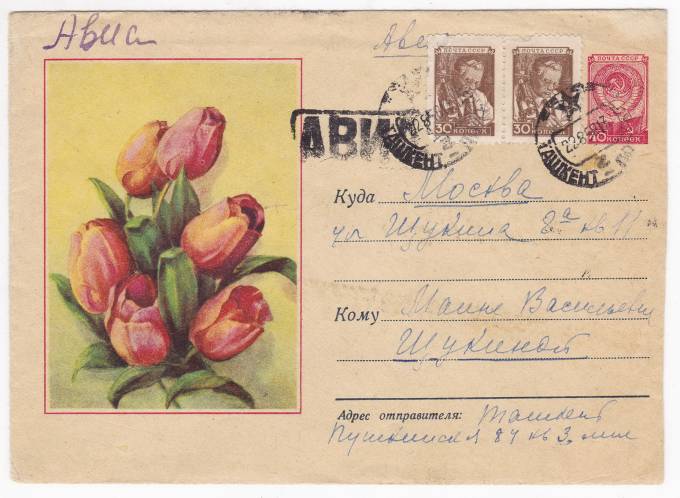 Авиа
Ави
ПОЧТА СССР
ПОЧТА СССР
ПОЧТА СССР
30 КОПЕЕК
30 КОПЕЕК
40 КОПЕЕК
АВИА
ТАШКЕНТ
ТАШКЕНТ
Куда Москва
ул Щукина 8а кв 11
Кому Маине Васильевне
Щукиной
Адрес отправителя: Ташкент
Пушкинская 84 кв 3